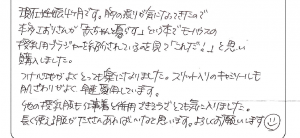 現在妊娠4ヶ月です。胸の張りが気になってきたので
本やおりさんが「赤ちゃんを産ず」という本でモーハウスの
授乳用ブラジャーが紹介されているのを見て「これだ！」と思い
購入しました。
つけ心地がよくとっても楽になりました。スリット入りのキャミソールも
肌ざわりがよく毎日愛用しています。
他の授乳服も仕事着と併用できそうでとても気に入りました。
長く使える服がたくさんあればいいなと思います。よろしくお願いします